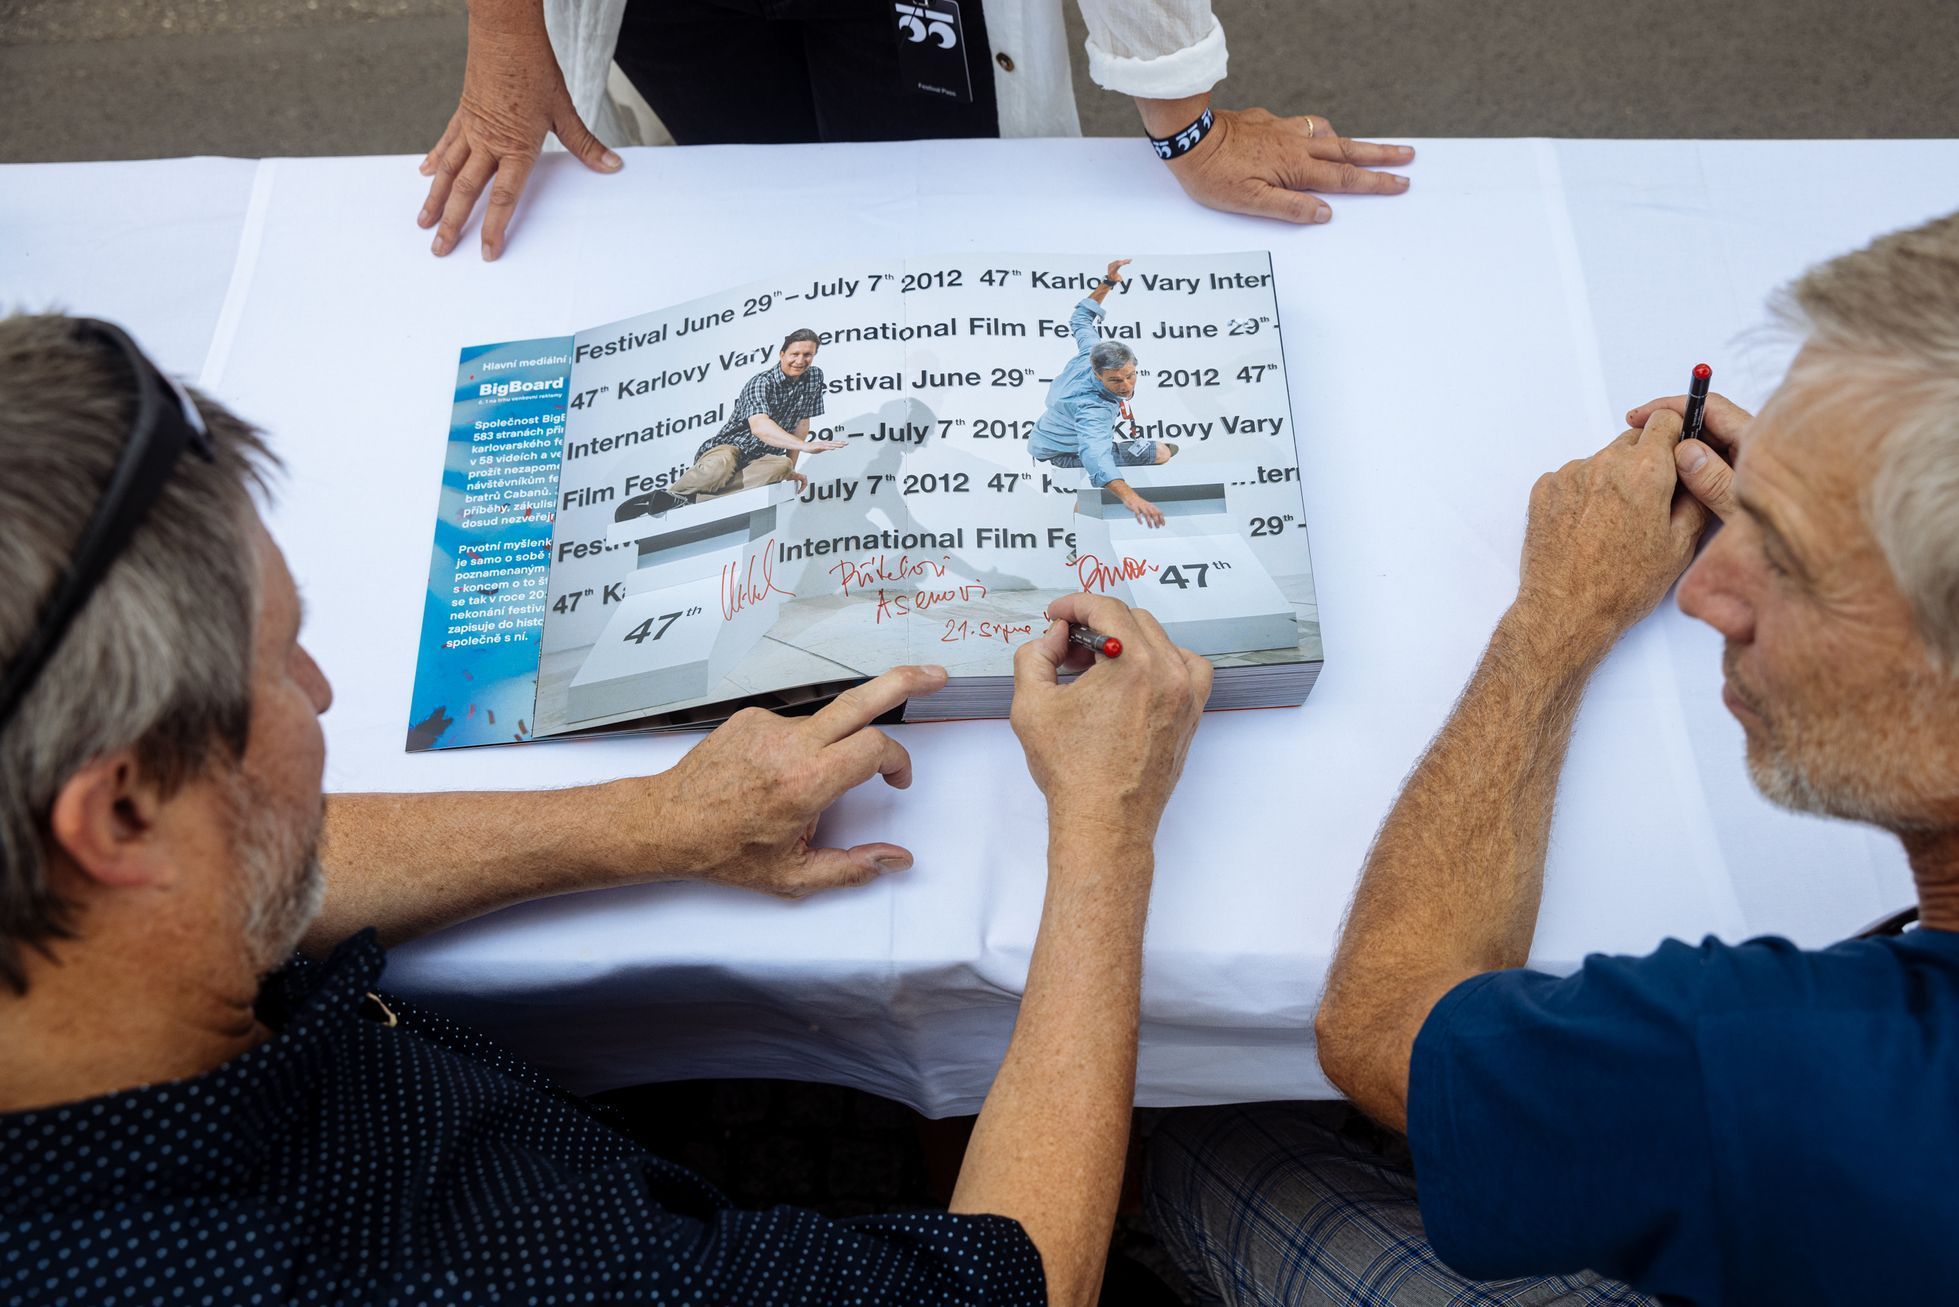 55
Festival Pass
55
Festival June 29th – July 7th 2012 47th Karlovy Vary Inter
47th Karlovy Vary ernational Film Fe ival June 29th -
International estival June 29th – th 2012 47th
Film Festi 29th – July 7th 2012 Karlovy Vary
July 7th 2012 47th Ka ...ter
Festiv International Film Fe 29th -
47th Ka
47th
47th
Přítelovi
Asenovi
21. srpna
Hlavní mediální
BigBoard
č. 1 na trhu venkovní reklamy
Společnost BigB
583 stranách při
karlovarského fe
v 58 videích a ve
prožít nezapome
návštěvníkům fe
bratrů Cabanů.
příběhy, zákulis
dosud nezveřej
Prvotní myšlenk
je samo o sobě
poznamenaným
s koncem o to š
se tak v roce 20
nekonání festiva
zapisuje do histo
společně s ní.